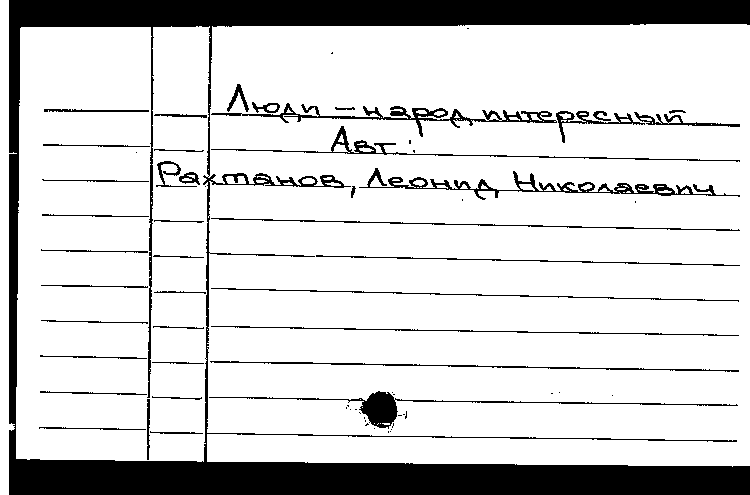 Люди – народ интересный
Авт.:
Рахтанов, Леонид Николаевич